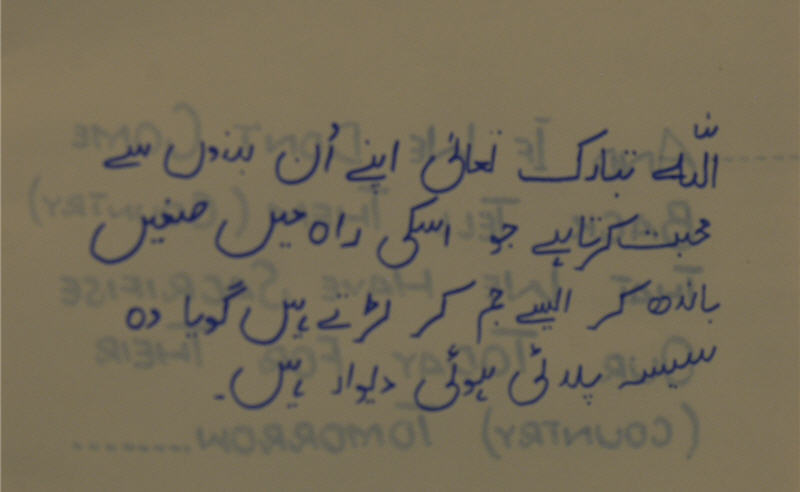 اللہ تبارک تعالیٰ اپنے اُن بندوں سے
محبت کرتا ہے جو اسکی راہ میں صفیں
باندھ کر ایسے جم کر لڑتے ہیں گویا وہ
سیسہ پلائی ہوئی دیوار ہیں۔
AND IF WE DON'T COME
BACK TELL THEM (COUNTRY)
THAT WE HAVE SACRIFISE
OUR TODAY FOR THEIR
(COUNTRY) TOMORROW